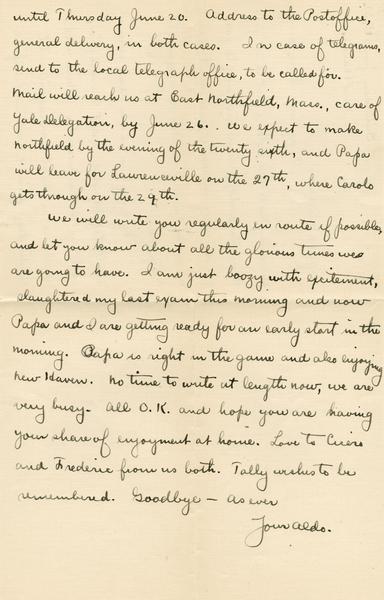 until Thursday June 20. Address to the Postoffice,
general delivery, in both cases. In case of telegrams,
send to the local telegraph office, to be called for.
Mail will reach us at East Northfield, Mass., care of
Yale Delegation, by June 26. We expect to make
northfield by the evening of the twenty sixth, and Papa
will leave for Lawrenceville on the 27th, where Carolo
gets through on the 29th.
We will write you regularly en route if possible,
and let you know about all the glorious times we
are going to have. I am just boozy with excitement,
slaughtered my last exam this morning and now
Papa and I are getting ready for an early start in the
morning. Papa is right in the game and also enjoying
New Haven. No time to write at length now, we are
very busy. All O.K. and hope you are having
your share of enjoyment at home. Love to Cicero
and Frederic from us both. Tally wishes to be
remembered. Goodbye — as ever
Your Aldo.